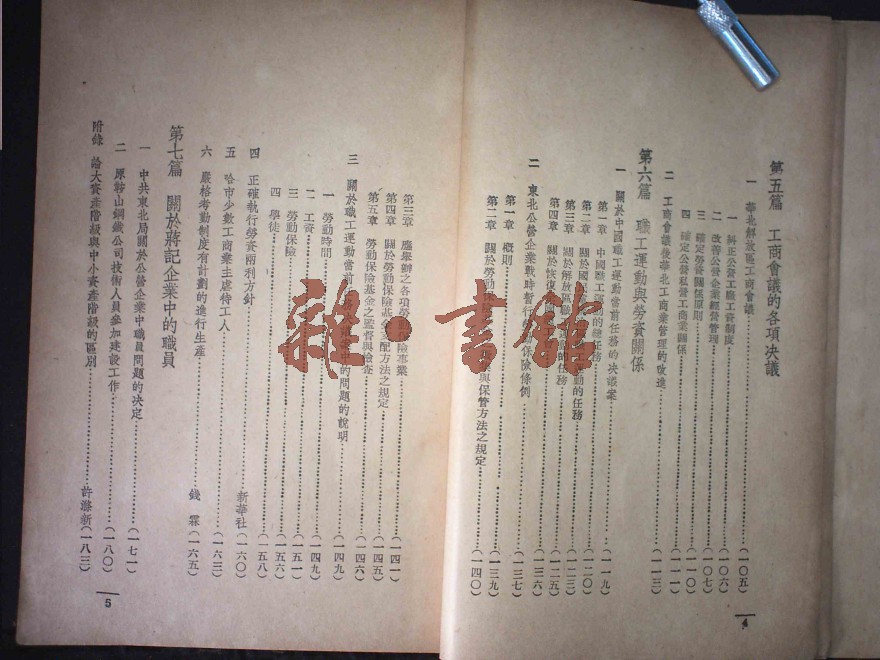 第五篇 工商會議的各項決議
一 華北解放區工商會議……(一〇五)
一 糾正公營工廠工資制度
二 改善公營企業經營管理……(一〇六)
三 確定勞資關係原則……(一〇七)
四 確定公營私營工商業關係……(一一〇)
二 工商會議後華北工商業管理的改進……(一一三)
第六篇 職工運動與勞資關係
一 關於中國職工運動當前任務的決議案
第一章 中國職工運動的總任務……(一一九)
第二章 關於解放區職工運動的任務
第三章 關於國
第四章 關於恢復
二 東北公營企業戰時暫行勞動保險條例……(一三六)
第一章 概則……(一三七)
第二章 關於勞動保險 與保管方法之規定……(一四〇)
4
第三章 應舉辦之各項勞動保險事業……(一四一)
第四章 關於勞動保險基金 配方法之規定……(一四五)
第五章 勞動保險基金之監督與檢查……(一四六)
三 關於職工運動當前 決議案中的問題的說明……(一四九)
一 勞動時間
二 工資……(一四九)
三 勞動保險……(一五一)
四 學徒……(一五六)
四 正確執行勞資兩利方針……新華社(一六〇)
五 哈市少數工商業主虐待工人……(一六三)
六 嚴格考勤制度有計劃的進行生產……錢霖(一六五)
第七篇 關於蔣記企業中的職員
一 中共東北局關於公營企業中職員問題的決定……(一七一)
二 原鞍山鋼鐵公司技術人員參加建設工作……(一八〇)
附錄 論大資產階級與中小資產階級的區別……許滌新(一八三)
5
雜·書館